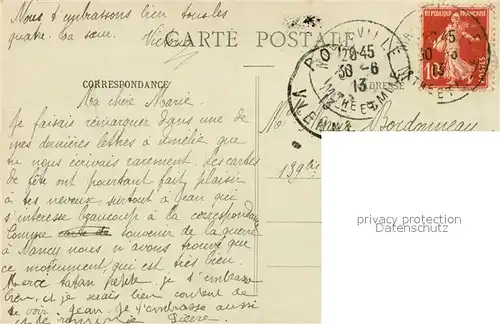 Nous t'embrassons bien tous les
quatre. Ta sœur. Victorine
CARTE POSTALE
CORRESPONDANCE
ADRESSE
RÉPUBLIQUE FRANÇAISE
POSTES
10
20-45
30-6
13
MTHE ET M
20 45
30
13
Ma chère Marie.
Je faisais remarquer dans une de
mes dernières lettres à Amélie que
tu nous écrivais rarement. Les cartes
de fête ont pourtant fait plaisir
à tes neveux surtout à Jean qui
s'intéresse beaucoup à la correspondance
Comme souvenir de la guerre
à Nancy nous n'avons trouvé que
ce monument qui est très bien.
Merci tatan petite. je t'embrasse
bien et je serais bien content de
te voir. Jean. Je t'embrasse aussi
Pierre
Bordonneau
139 bis
privacy protection
OLDTHING.DE